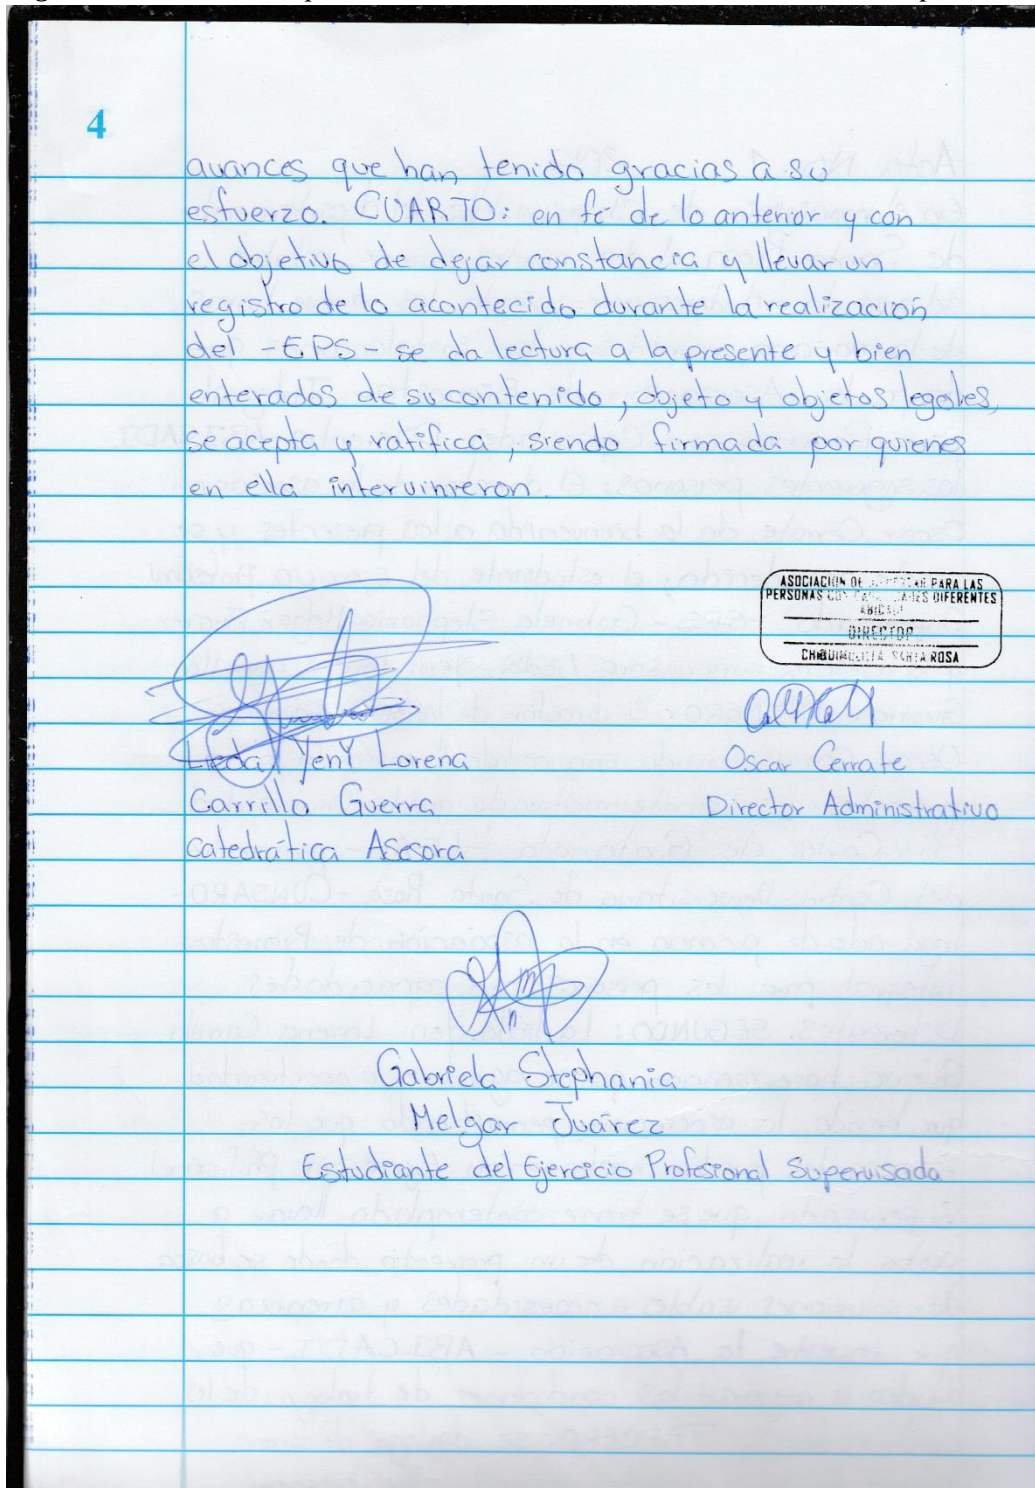 4
avances que han tenido gracias a su
esfuerzo. CUARTO: en fé de lo anterior y con
el objetivo de dejar constancia y llevar un
registro de lo acontecido durante la realización
del -EPS- se da lectura a la presente y bien
enterados de su contenido, objeto y objetos legales,
se acepta y ratifica, siendo firmada por quienes
en ella intervinieron.
ASOCIACIÓN DE PARA LAS
PERSONAS CON DIFERENTES
DIRECTOR
CHIQUIMULILLA, SANTA ROSA
Yeny Lorena
Carrillo Guerra
Catedrática Asesora
Oscar Cerrate
Director Administrativo
Gabriela Stephania
Melgar Juárez
Estudiante del Ejercicio Profesional Supervisada